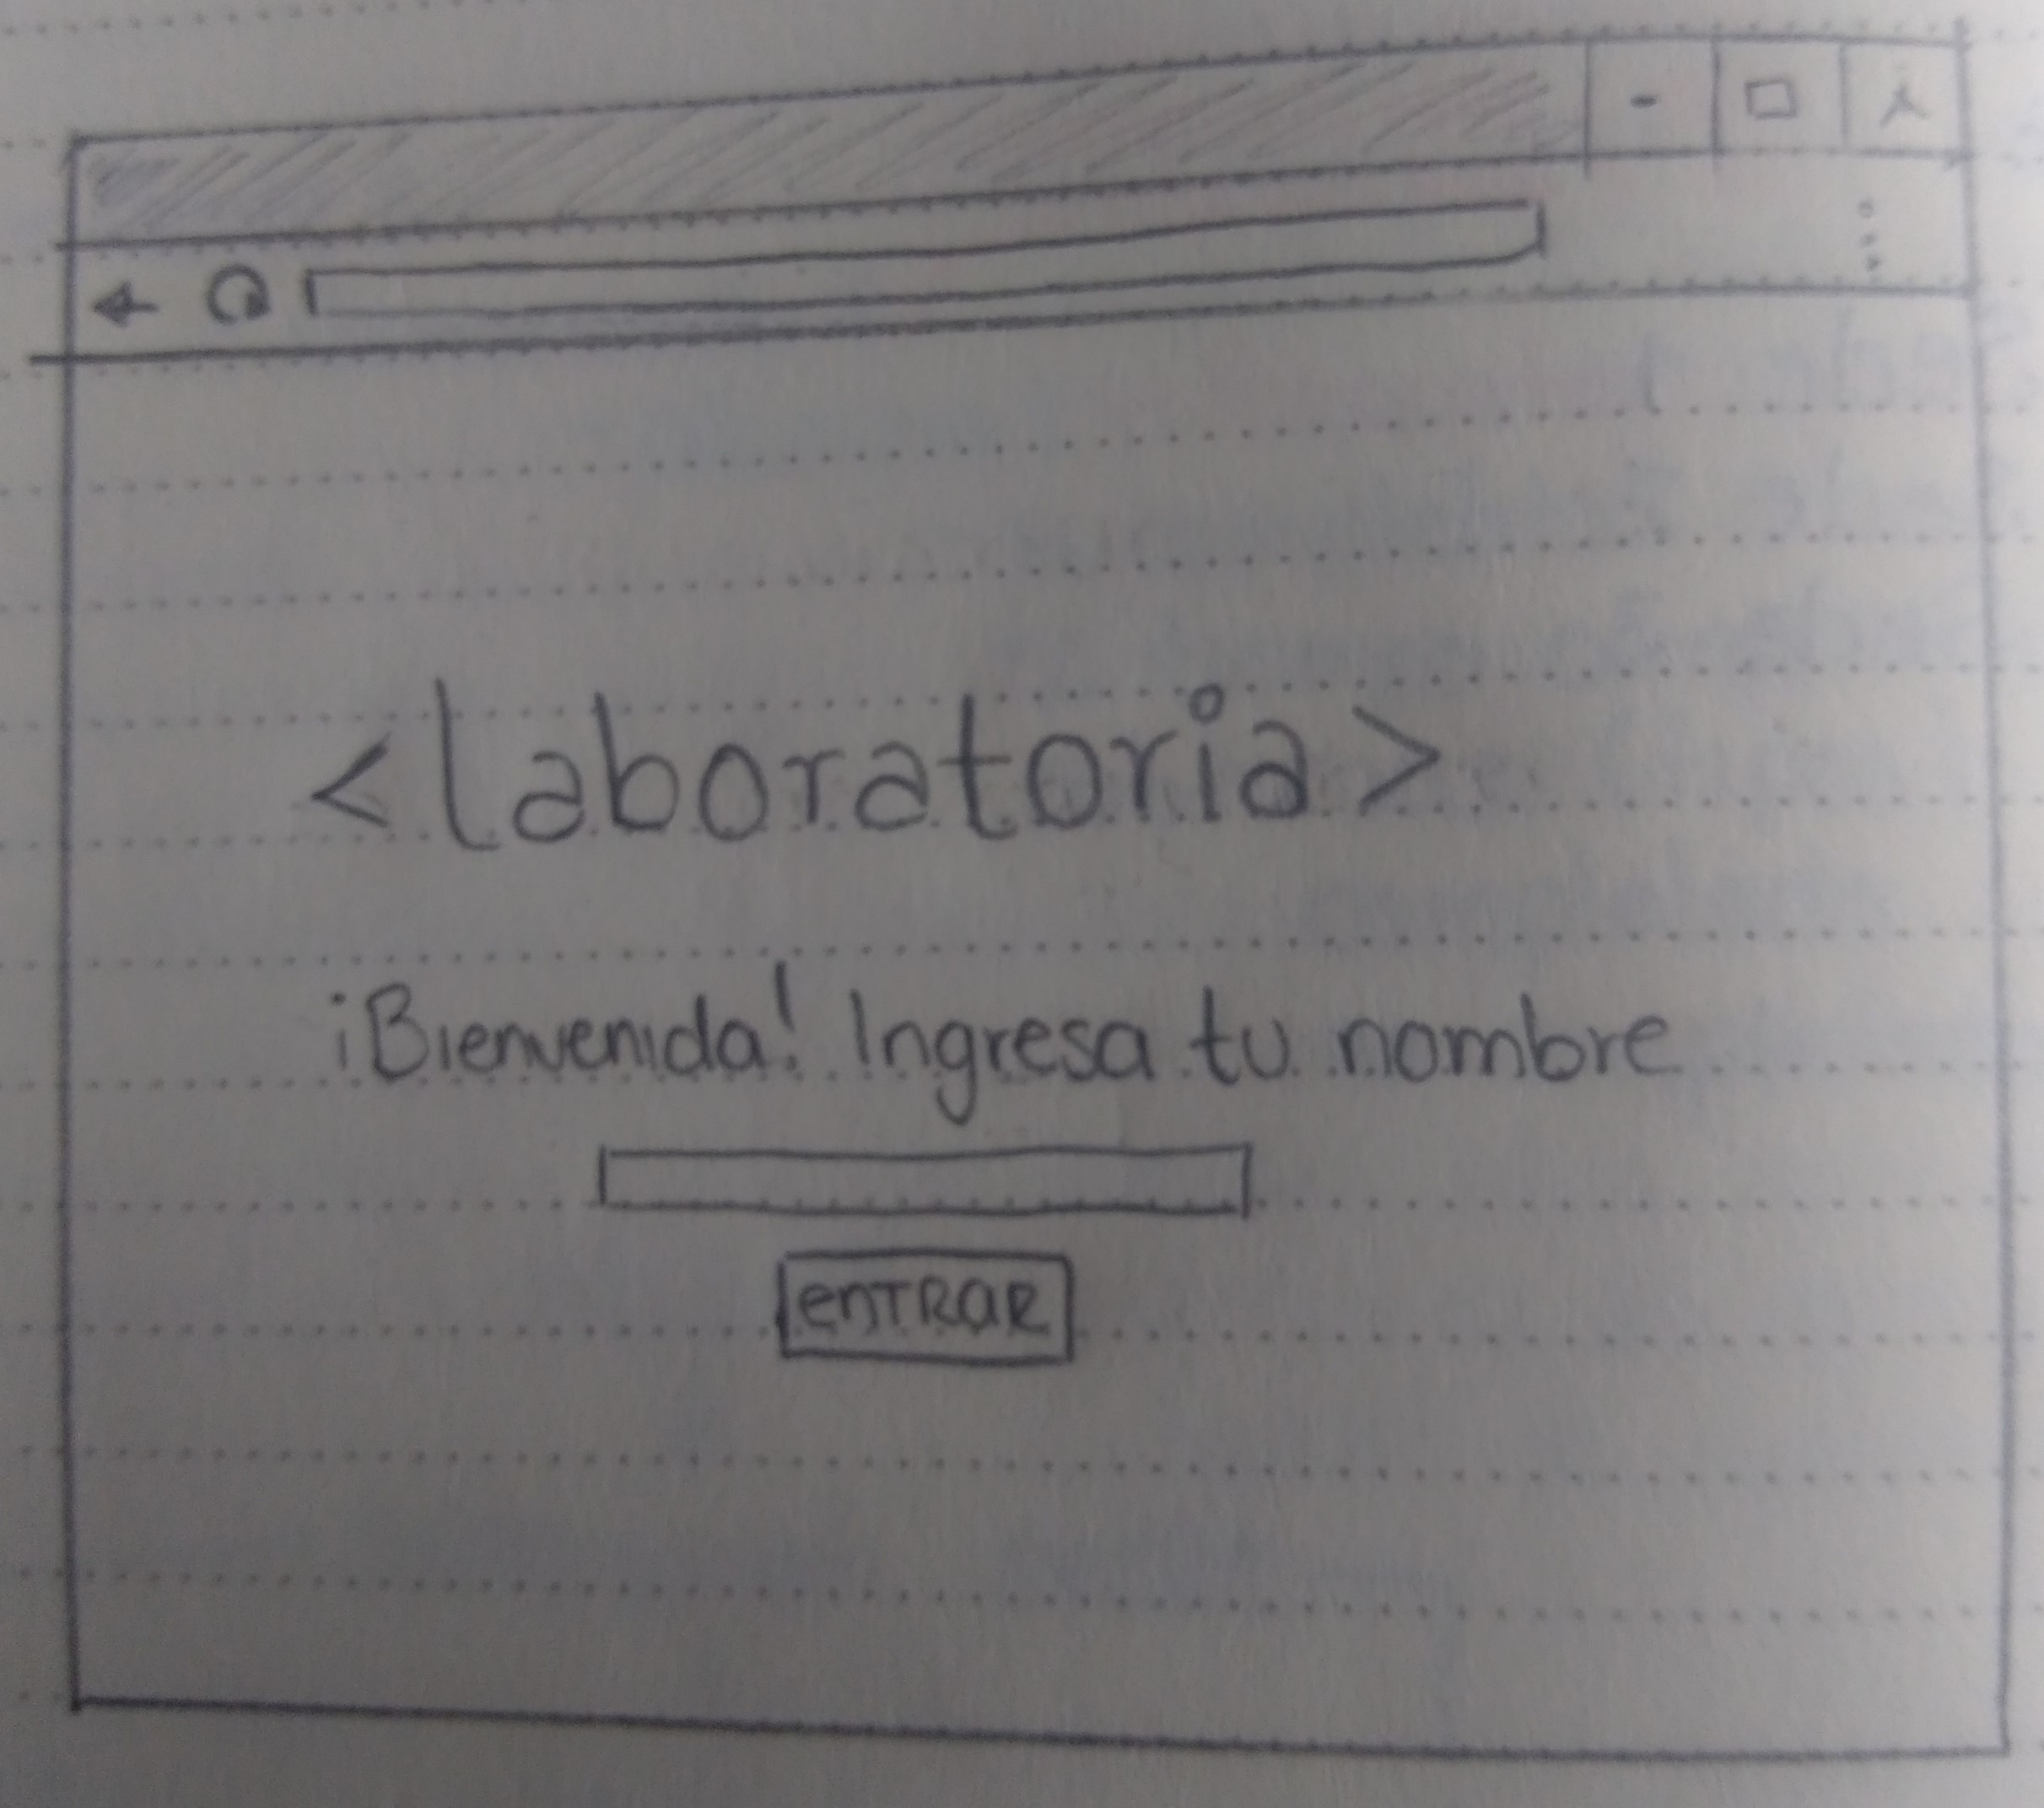 <laboratoria>
¡Bienvenida! Ingresa tu nombre
enTRaR